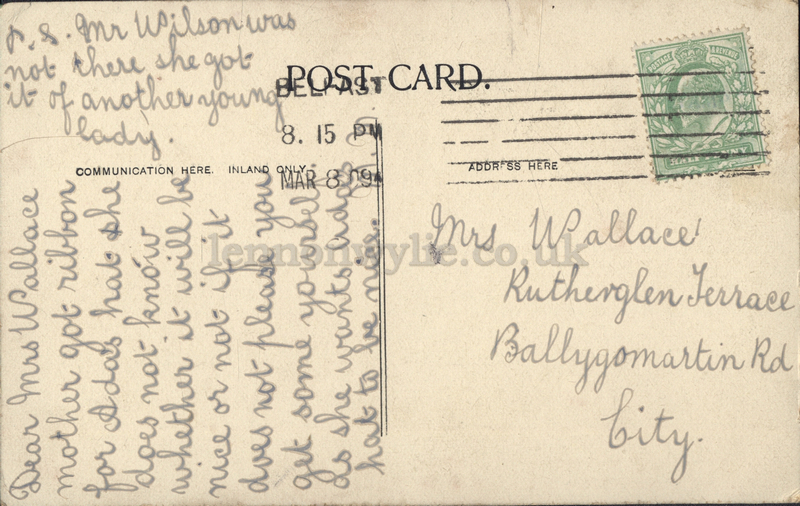 P.S. Mr Wilson was
not there she got
it of another young
lady.
POST CARD.
BELFAST
8. 15 PM
MAR 8 09
POSTAGE & REVENUE
HALFPENNY
COMMUNICATION HERE. INLAND ONLY.
ADDRESS HERE
Dear Mrs Wallace
mother got ribbon
for Ada's hat she
does not know
whether it will be
nice or not if it
does not please you
get some yourself
as she wants Ada's
hat to be nice.
Mrs Wallace
Rutherglen Terrace
Ballygomartin Rd
City.
lennonwylie.co.uk